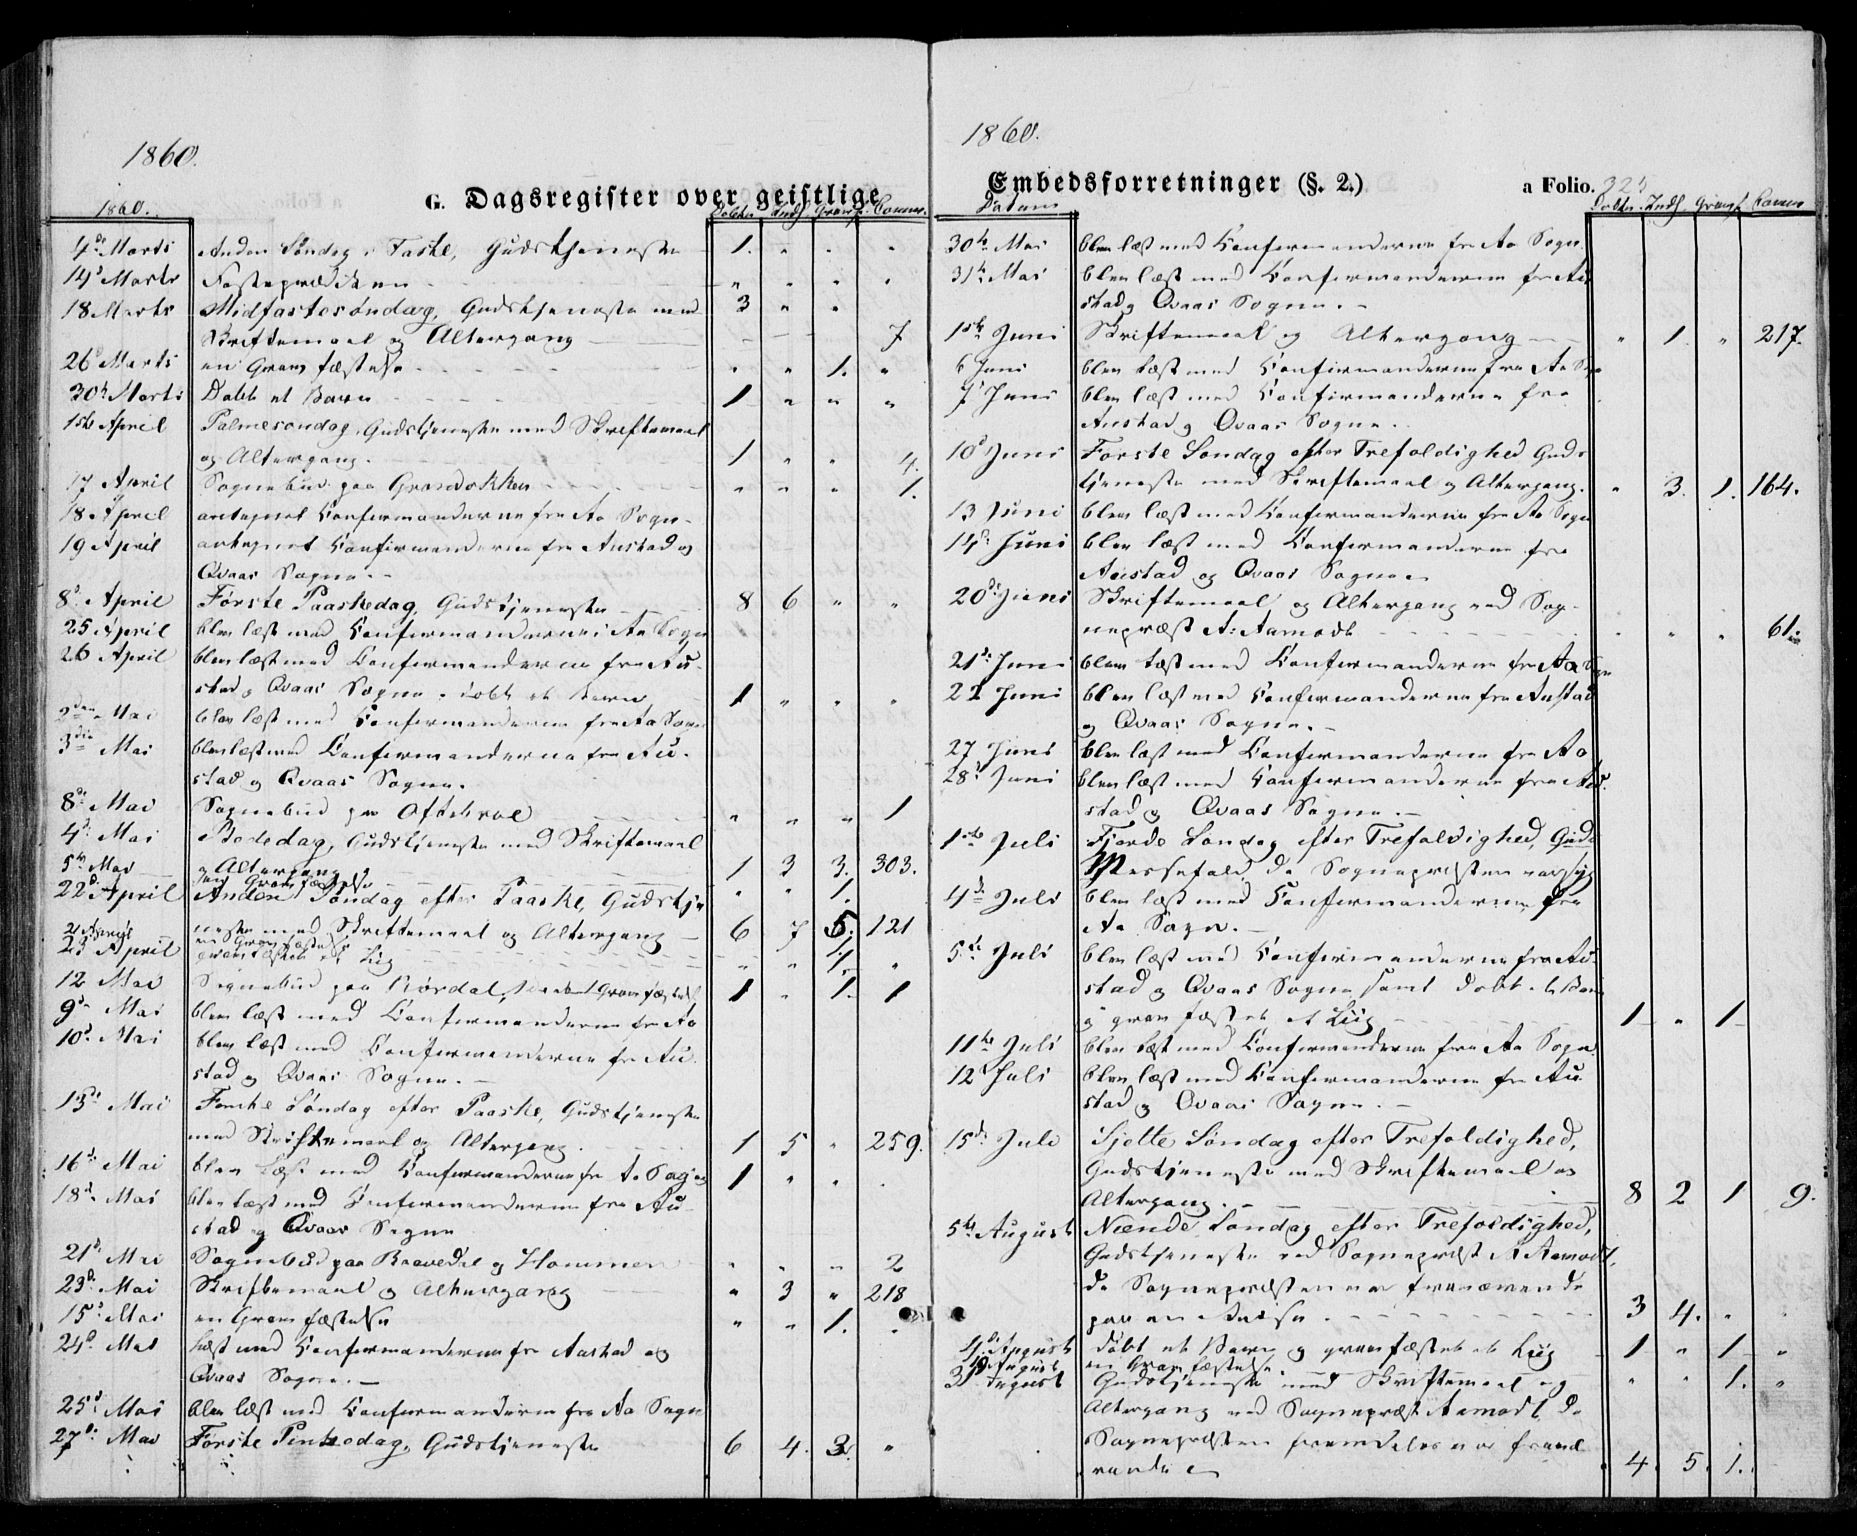 1860.
G. Dagsregister over geistlige
1860. Døbte. Indl. Gravf. Comm.
4de Marts Anden Søndag i Faste, Gudstjeneste 1. " " "
14d Marts Fasteprædiken " " " "
18 Marts Midfastesøndag, Gudstjeneste med 3 " "
Skriftemaal og Altergang 7
26 Marts en Gravfæstelse " " 1. "
30te Marts Døbt et Barn 1 " " "
1ste April Palmesøndag, Gudstjeneste med Skriftemaal
og Altergang. 1 " " 4.
17 April Sognebud paa " " " 1.
18 April antegnet Confirmanderne fra Aa Sogn
19 April antegnet Confirmanderne fra Austad og
Qvaas Sogne.
8d April Første Paaskedag, Gudstjeneste 8 6 " "
25 April blev læst med Confirmanderne i Aa Sogn
26 April blev læst med Confirmanderne fra Au-
stad og Qvaas Sogne. døbt et Barn 1 " " "
2den Mai blev læst med Confirmanderne fra Aa Sogn
3die Mai blev læst med Confirmanderne fra Au-
stad og Qvaas Sogne.
8de Mai Sognebud paa Oftebroe " " " 1
4d Mai Bededag, Gudstjeneste med Skriftemaal
og Altergang 1 3 3. 303.
5te Mai en Gravfæstelse " " 1.
22d April Anden Søndag efter Paaske, Gudstje
neste med Skriftemaal og Altergang 6 7 5. 121
2 April en Gravfæstelse
23 April gravfæstet et Liig " " 1. "
12 Mai Sognebud paa Rørdal, 1 Gravfæstelse 1 " 1. 1
9de Mai blev læst med Confirmanderne fra Aa
10d Mai blev læst med Confirmanderne fra Au
stad og Qvaas Sogne.
13de Mai Femte Søndag efter Paaske, Gudstjeneste
med Skriftemaal og Altergang. 1 5 " 259.
16d Mai blev læst med Confirmanderne fra Aa Sogn 1 " " "
18d Mai blev læst med Confirmanderne fra Au-
stad og Qvaas Sogne
21d Mai Sognebud paa og Hommen " " " 2
23d Mai Skriftemaal og Altergang " 3 " 218
15d Mai en Gravfæstelse " " 1. "
24d Mai læst med Confirmanderne fra Austad og
Qvaas Sogne.
25d Mai blev læst med Confirmanderne fra Aa Sogn
27de Mai Første Pintsedag, Gudstjeneste 6 4. 3. "
1860.
Embedsforretninger (§. 2.) a Folio. 325
Datum Døbte. Indl. Gravf. Comm
30te Mai blev læst med Confirmanderne fra Aa Sogn.
31te Mai blev læst med Confirmanderne fra Au
stad og Qvaas Sogne.
1ste Juni Skriftemaal og Altergang " 1. " 217.
6 Juni blev læst med Confirmanderne fra Aa Sogn
7d Juni blev læst med Confirmanderne fra
Austad og Qvaas Sogne.
10d Juni Første Søndag efter Trefoldighed Guds
tjeneste med Skriftemaal og Altergang. " 3. 1. 164.
13 Juni blev læst med Confirmanderne fra Aa Sogn
14d Juni blev læst med Confirmanderne fra
Austad og Qvaas Sogne.
20de Juni Skriftemaal og Altergang ved Sog-
nepræst A: Aamodt " " " 61.
21de Juni blev læst med Confirmanderne fra Aa Sogn
22 Juni blev læst med Confirmanderne fra Austad
og Qvaas Sogne.
27 Juni blev læst med Confirmanderne fra Aa
28d Juni blev læst med Confirmanderne fra Au
stad og Qvaas Sogne.
1ste Juli Fjerde Søndag efter Trefoldighed, Guds
Messefald, da Sognepræsten var syg
4de Juli blev læst med Confirmanderne fra
Aa Sogn.
5te Juli blev læst med Confirmanderne fra Au-
stad og Qvaas Sogne samt døbt et Barn
og gravfæstet et Liig 1 " 1
11te Juli blev læst med Confirmanderne fra Aa Sogn.
12 Juli blev læst med Confirmanderne fra Au
stad og Qvaas Sogne.
15de Juli Sjette Søndag efter Trefoldighed,
Gudstjeneste med Skriftemaal og
Altergang. 8 2 1 9.
5te August Niende Søndag efter Trefoldighed,
Gudstjeneste ved Sognepræst A Aamodt,
da Sognepræsten var fraværende
paa en Reise. 3 4. " "
August døbt et Barn og gravfæstet et Liig 1 " 1 "
August en Gravfæstelse " " 1. "
August Gudstjeneste med Skriftemaal og
Altergang ved Sognepræst Aamodt, da
Sognepræsten fremdeles var fravæ
rende 4. 5. 1.